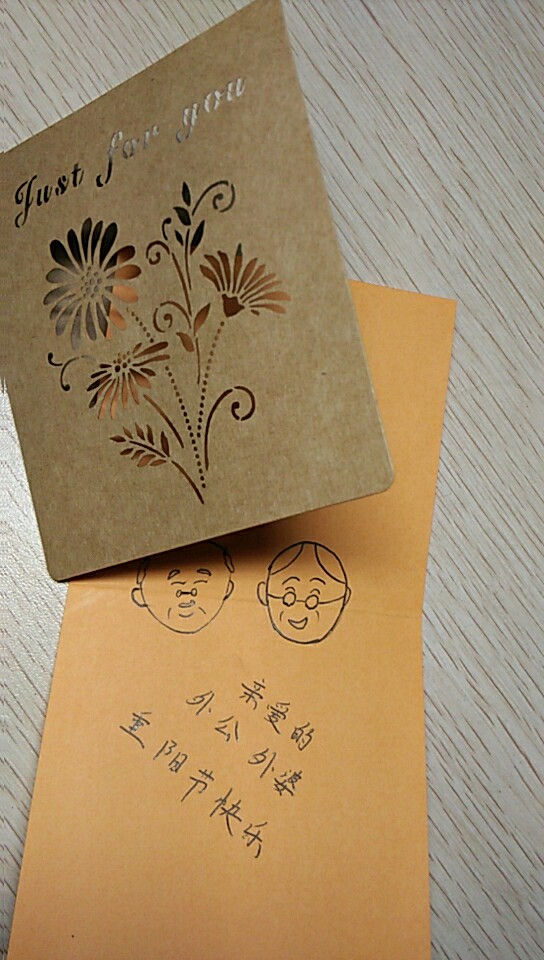 Just for you
亲爱的
外公 外婆
重阳节快乐